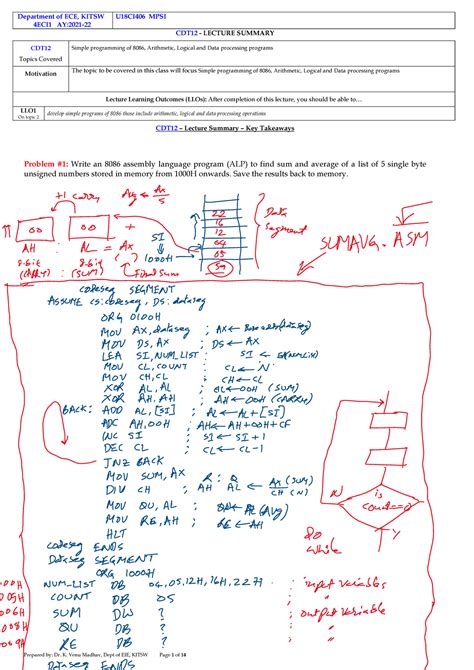 Department of ECE, KITSW
4ECI1 AY:2021-22
U18CI406 MPSI
CDT12 - LECTURE SUMMARY
CDT12
Topics Covered
Simple programming of 8086, Arithmetic, Logical and Data processing programs
Motivation
The topic to be covered in this class will focus Simple programming of 8086, Arithmetic, Logical and Data processing programs
Lecture Learning Outcomes (LLOs): After completion of this lecture, you should be able to…
LLO1
On topic 2
develop simple programs of 8086 those include arithmetic, logical and data processing operations
CDT12 – Lecture Summary – Key Takeaways
Problem #1: Write an 8086 assembly language program (ALP) to find sum and average of a list of 5 single byte
unsigned numbers stored in memory from 1000H onwards. Save the results back to memory.
+1 carry
Avg ← Ax/5
Data
Segment
22
16
12
04
05
00
00
+
SI
1000H
AH : AL = Ax
8-bit 8-bit
(CARRY) : (SUM)
Final Sum
SUMAVG.ASM
codeseg SEGMENT
ASSUME CS:codeseg, DS:dataseg
ORG 0100H
MOV AX,dataseg ; AX← Base addr(dataseg)
MOV DS,AX ; DS←AX
LEA SI,NUM_LIST ; SI ←
MOV CL,COUNT ; CL←N
MOV CH,CL ; CH←CL
XOR AL,AL ; AL←00H (SUM)
XOR AH,AH ; AH←00H (CARRY)
BACK: ADD AL,[SI] ; AL←AL+[SI]
ADC AH,00H ; AH←AH+00H+CF
INC SI ; SI←SI+1
DEC CL ; CL←CL-1
JNZ BACK
MOV SUM,AX R:Q
DIV CH ; AH AL ← AX (SUM)
CH (N)
MOV QU,AL ; QU←AL (Avg)
MOV RE,AH ; RE←AH
HLT
codeseg ENDS
Dataseg SEGMENT
ORG 1000H
NUM_LIST DB 04,05,12H,16H,22H ; input variables
COUNT DB 05
SUM DW ? ; output variable
QU DB ?
RE DB ?
Dataseg ENDS
N
is
count==0
Y
Do
while
Prepared by: Dr. K. Venu Madhav, Dept of EIE, KITSW Page 1 of 14